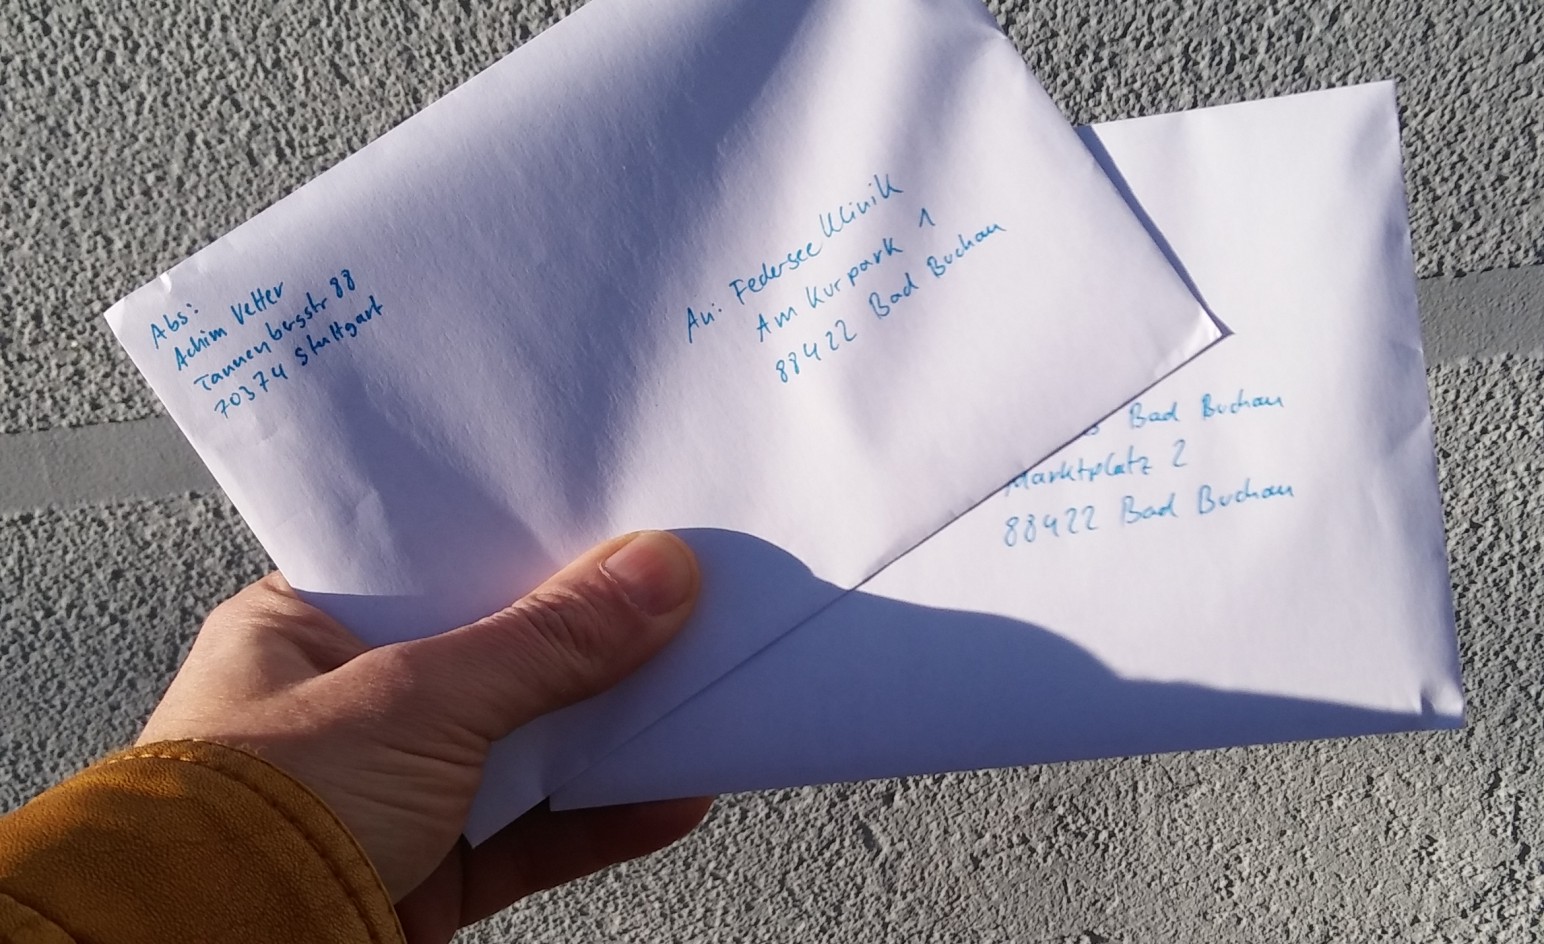 Abs:
Achim Vetter
Tannenbergstr 88
70374 Stuttgart
An: Federsee Klinik
Am Kurpark 1
88422 Bad Buchau
Bad Buchau
Marktplatz 2
88422 Bad Buchau